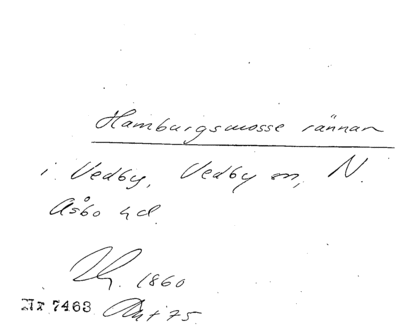 Hamburgsmosse rännan
i Vedby, Vedby sn, N.
Åsbo hd.
1860
Nr 7463